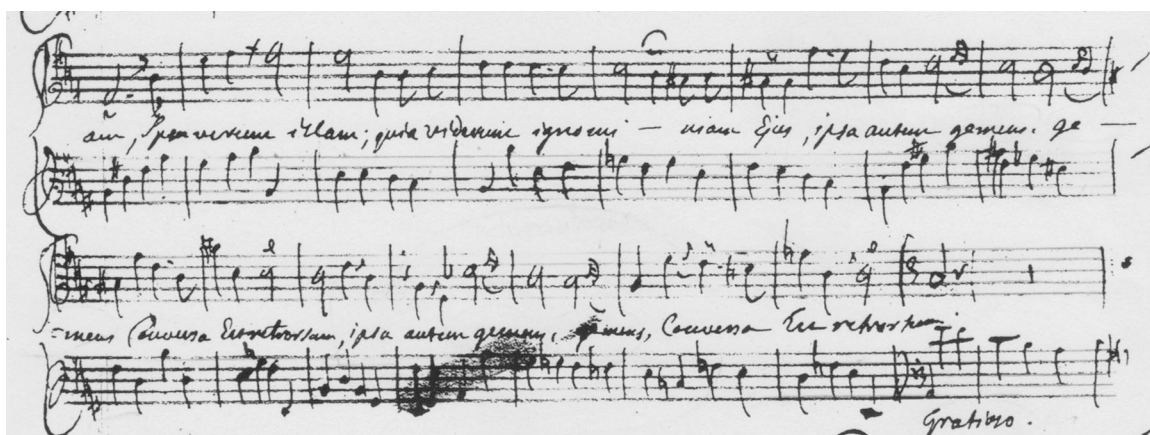 am, spreverunt illam; quia viderunt ignomi — niam Ejus, ipsa autem gemens. ge —
-mens Conversa Est retrorsum, ipsa autem gemens, gemens, Conversa Est retrorsum.
Gratioso.